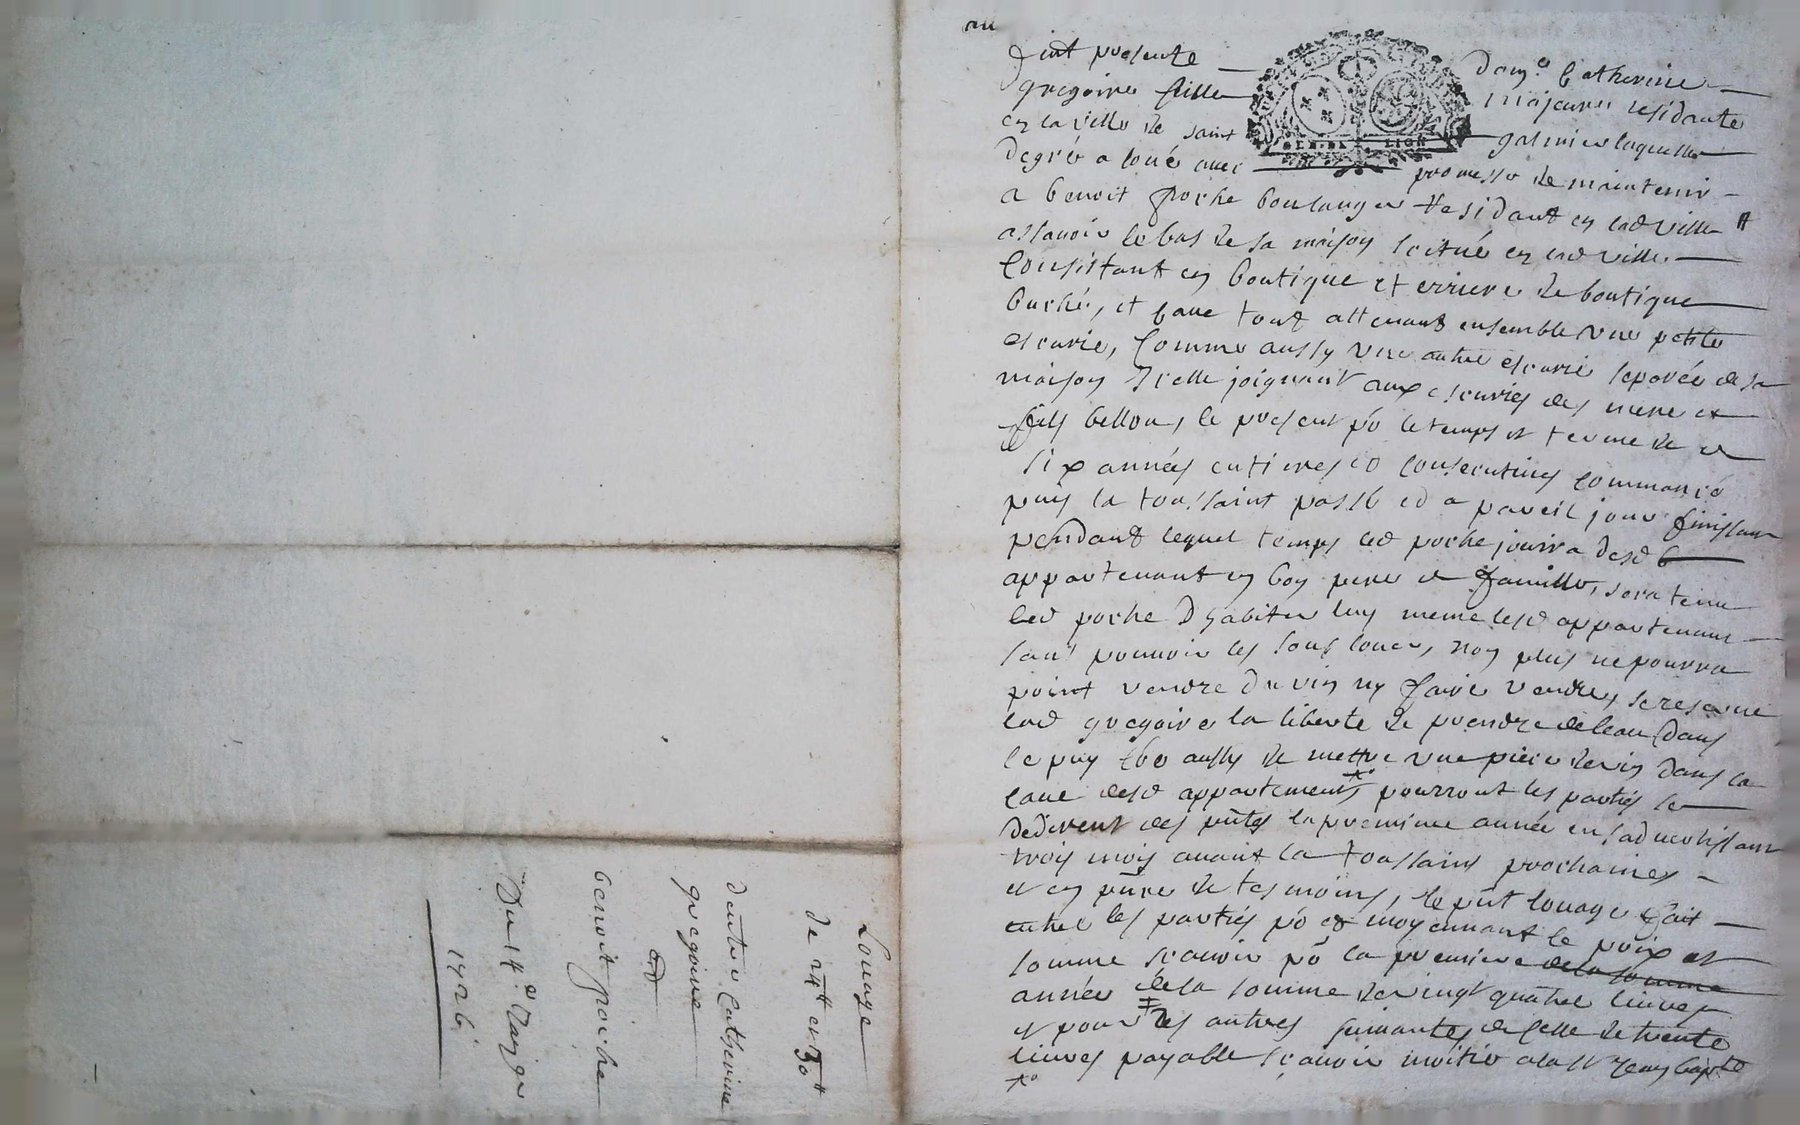 Louage
de 24# et 30#
dentre Catherine
gregoire
et
benoit poche
Du 14e
1726
fut presente dam.e Catherine
gregoire fille majeure residante
en la ville de saint galmier laquelle
de gré a loué avec promesse de maintenir
a benoit poche boulanger residant en lad ville
assavoir le bas de sa maison scitué en lad ville
Consistant en boutique et erriere de boutique
buché, et cave tout attenant ensemble une petite
escurie, Comme aussy une autre escurie separée de sa
maison Icelle joignant aux escuries des mere et
fils bellon, le present po le temps et terme de
six années entieres et consecutives commancé
puis la toussaint passé et a pareil jour finissant
pendant lequel temps led poche jouira desd
appartenant en bon pere de famille, sera tenu
led poche D habiter luy meme lesd appartenant
sans pouvoir les sous louer, non plus ne pourra
point vendre du vin ny faire vendre, se reserve
lad gregoire la liberté de prendre de leau dans
le puy aussy de mettre une piece de vin dans la
cave desd appartements pourront les parties se
dedirent des pntes la premiere année en sadvertissant
trois mois avant la toussaint prochaines
et en pnce de tesmoins, le pnt louage fait
entre les parties po et moyennant le prix et
somme scavoir po la premiere de la somme
année de la somme de vingt quatre livres
et pour les autres suivantes de celle de trente
livres payable scavoir moitié a la st Jean bapte